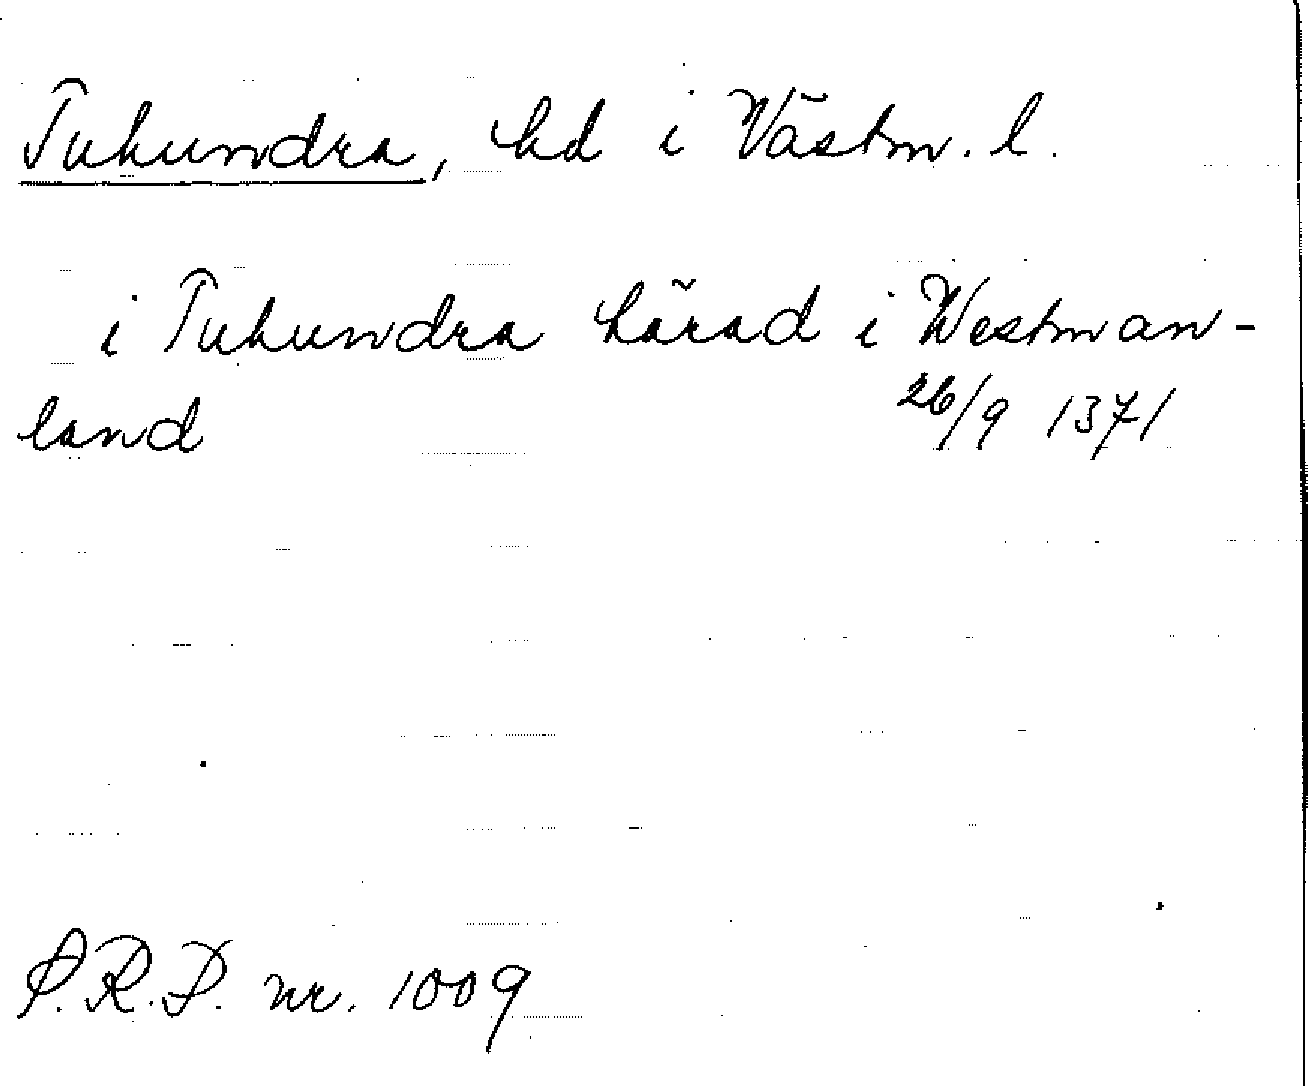 Tuhundra, hd i Västm. l.
i Tuhundra härad i Westman-
land 26/9 1371
S.R.P. nr. 1009